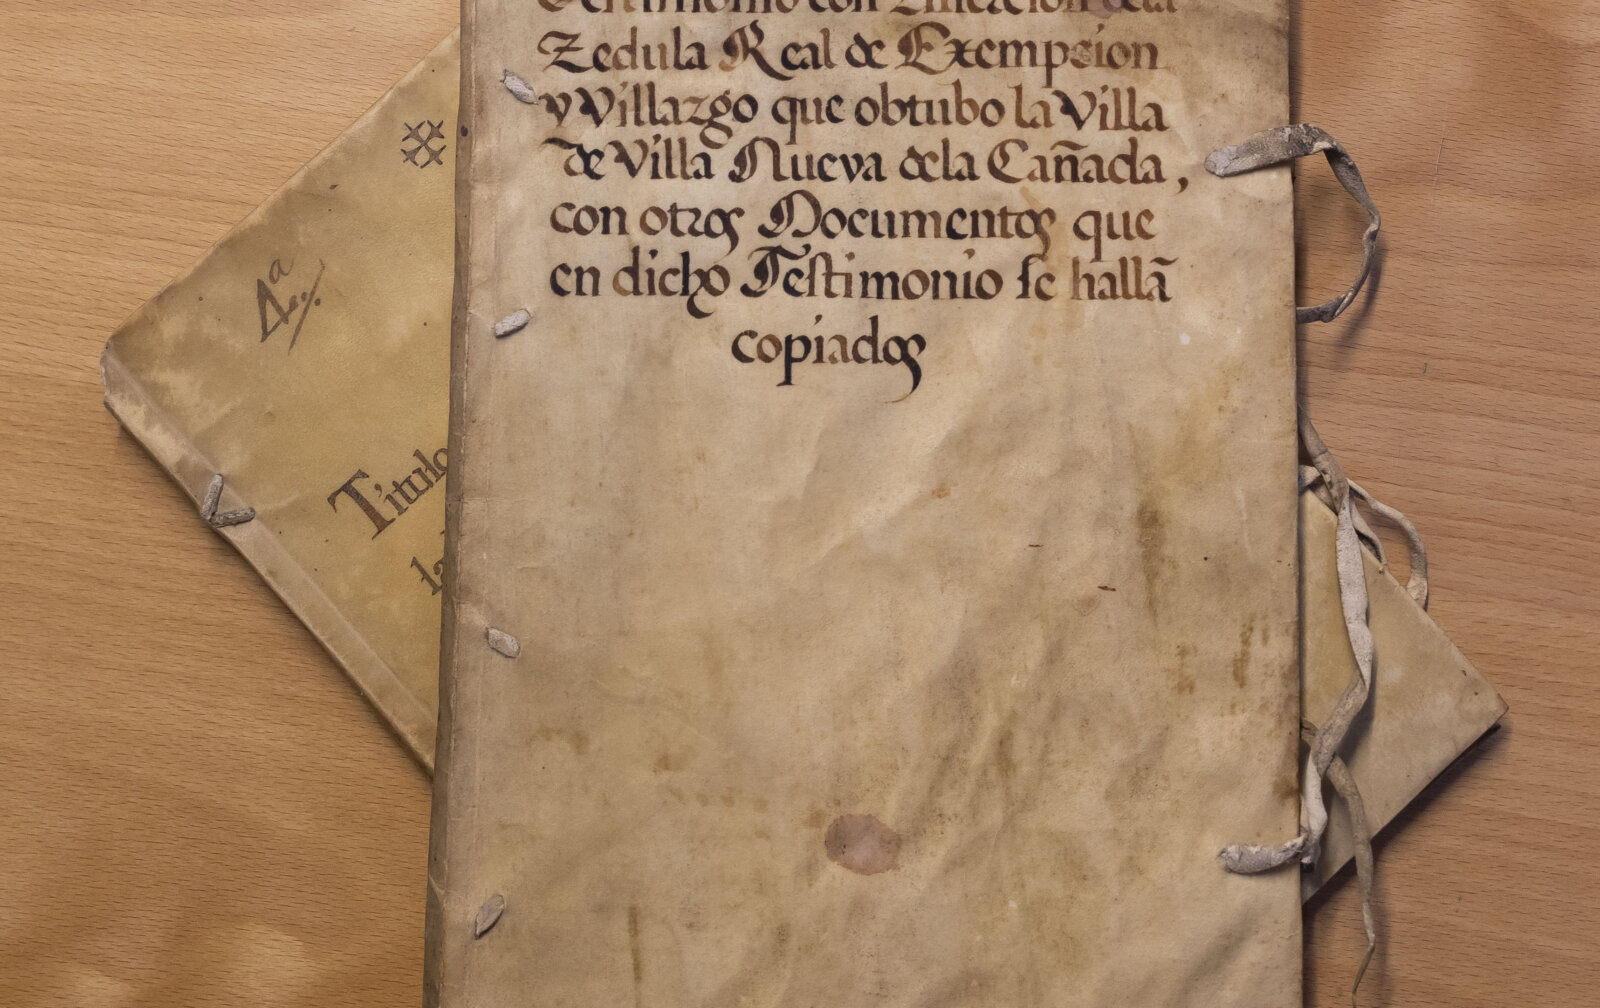 Testimonio con Insercion dela
Zedula Real de Exempcion
y Villazgo que obtubo la Villa
de Villa Nueva dela Cañada,
con otros Documentos que
en dicho Testimonio se hallã
copiados
4ª
Titulo
la